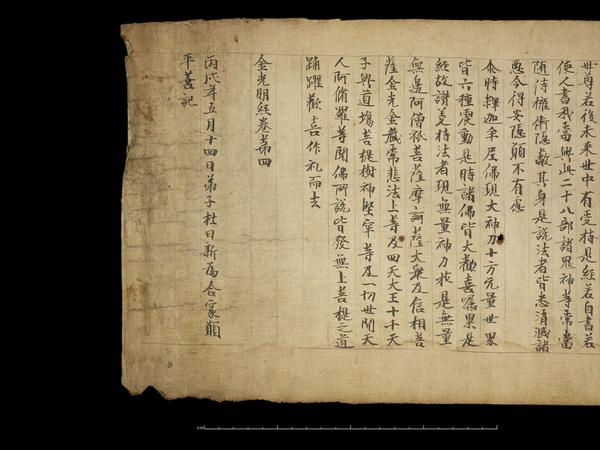 世尊若後未來世中有受持是經若自書若
使人書我當與此二十八部諸鬼神等常當
隨侍擁衛隱蔽其身是說法者皆悉消滅諸
惡令得安隱願不有慮
尒時釋迦牟尼佛現大神力十方无量世界
皆六種震動是時諸佛皆大歡喜囑累是
經故讚美持法者現無量神力於是無量
無邊阿僧祇菩薩摩訶薩大衆及信相菩
薩金光金藏常悲法上等及四天大王十千天
子與道塲菩提樹神堅牢等及一切世間天
人阿脩羅等聞佛所說皆發無上菩提之道
踊躍歡喜作礼而去
金光明經卷第四
丙戌年五月十四日弟子杜日新為合家願
平善記